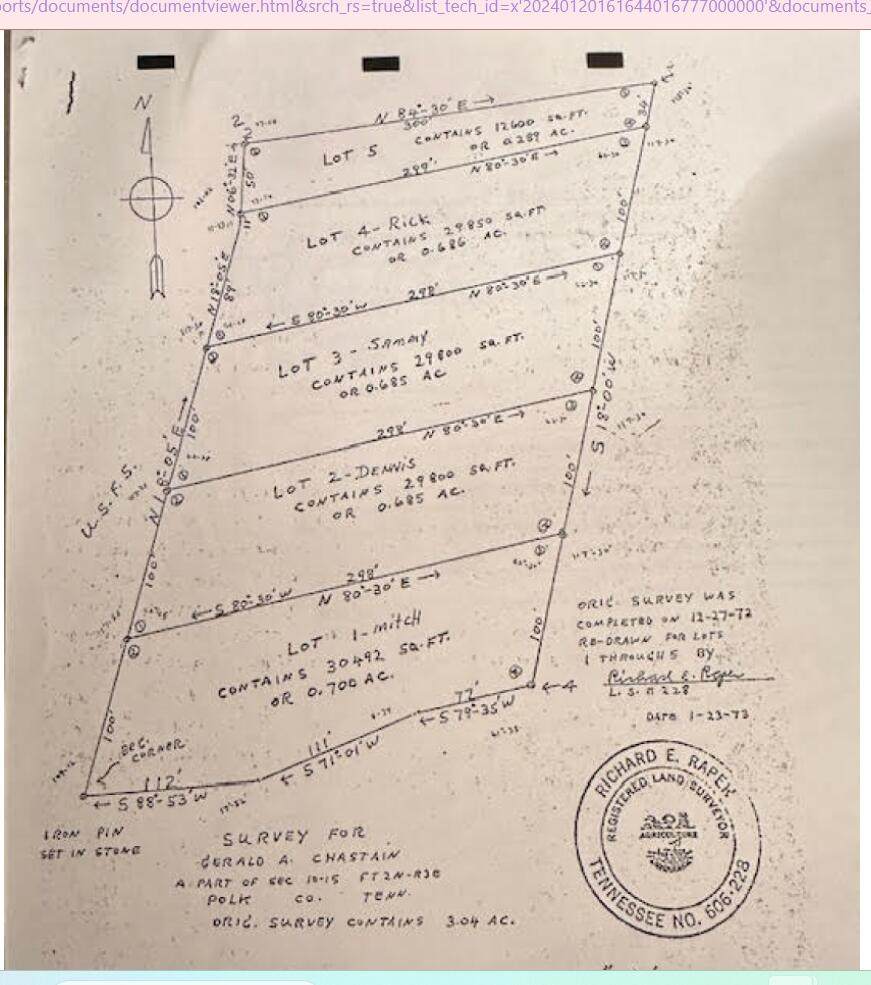 orts/documents/documentviewer.html&srch_rs=true&list_tech_id=x'20240120161644016777000000'&documents_
N
2
N 84°-30' E →
300'
34'
LOT 5
CONTAINS 12600 SQ.FT.
OR 0.289 AC.
N06°-32'E →
50'
299'
N 80°-30'E →
11'
LOT 4-Rick
CONTAINS 29850 SQ.FT
OR 0.686 AC.
100'
N18°-05'E
89'
298'
N 80°-30'E →
← S 80°-30'W
LOT 3 - SAMMY
CONTAINS 29800 SQ.FT.
OR 0.685 AC
100'
← S 18°-00'W
N 18°-05' E →
100'
298'
N 80°-30'E →
U.S.F.S.
LOT 2-DENNIS
CONTAINS 29800 SQ.FT.
OR 0.685 AC.
100'
100'
298'
← S 80°-30'W
N 80°-30' E →
LOT 1-mitch
CONTAINS 30492 SQ.FT.
OR 0.700 AC.
100'
100'
77'
← S 79°-35'W
← 4
111'
← S 71°-01'W
SEC. CORNER
112'
← S 88°-53'W
IRON PIN
SET IN STONE
ORIG. SURVEY WAS
COMPLETED ON 12-27-72
RE-DRAWN FOR LOTS
1 THROUGH 5 BY
Richard E. Roper
L.S. # 228
DATE 1-23-73
SURVEY FOR
GERALD A. CHASTAIN
A PART OF SEC 10-15 FT2N-R3E
POLK CO. TENN.
ORIG. SURVEY CONTAINS 3.04 AC.
RICHARD E. RAPER
REGISTERED LAND SURVEYOR
AGRICULTURE
TENNESSEE NO. 606-228